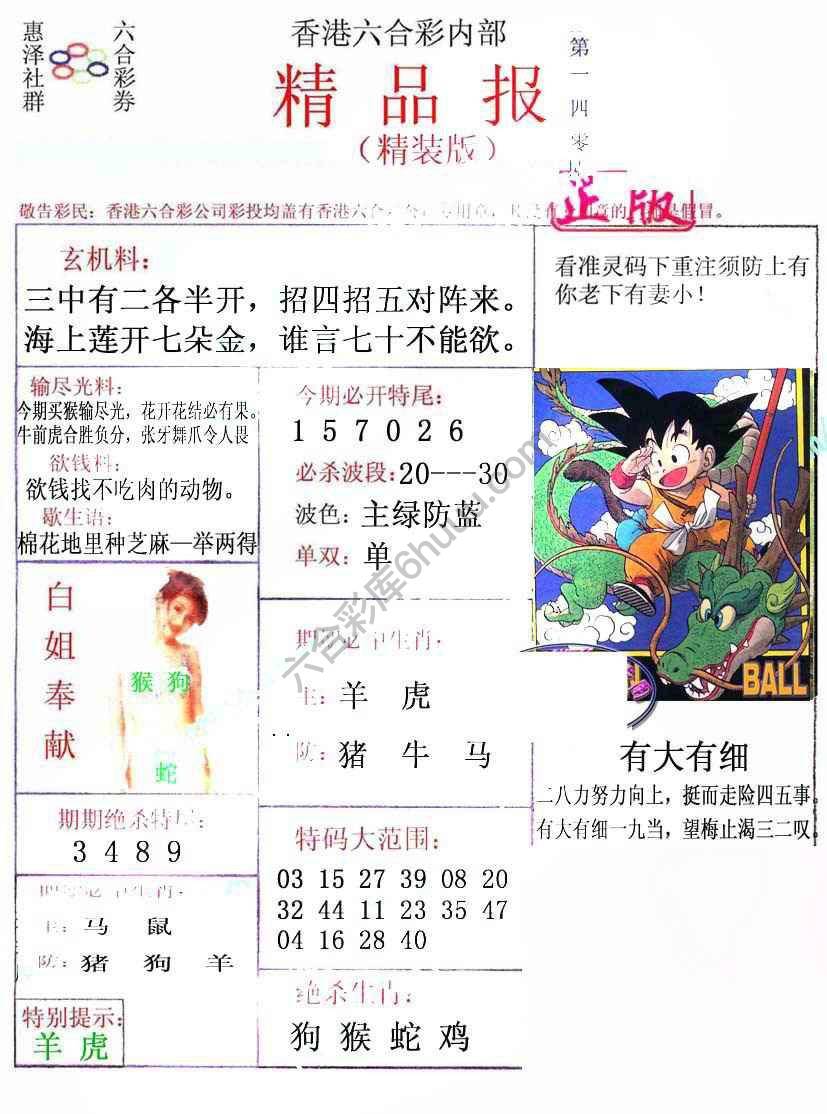 惠泽社群
六合彩券
香港六合彩内部
精品报
（精装版）
第一四零
正版
敬告彩民：香港六合彩公司彩投均盖有香港六合
玄机料：
三中有二各半开，招四招五对阵来。
海上莲开七朵金，谁言七十不能欲。
看准灵码下重注须防上有
你老下有妻小！
输尽光料：
今期买猴输尽光，花开花结必有果。
牛前虎合胜负分，张牙舞爪令人畏
欲钱料：
欲钱找不吃肉的动物。
歇生语：
棉花地里种芝麻—举两得
今期必开特尾：
1 5 7 0 2 6
必杀波段：20---30
波色：主绿防蓝
单双：单
白姐奉献
猴 狗
蛇
期期必中生肖：
主：羊 虎
防：猪 牛 马
BALL
有大有细
二八力努力向上，挺而走险四五事。
有大有细一九当，望梅止渴三二叹。
期期绝杀特尾：
3 4 8 9
主：马 鼠
防：猪 狗 羊
特别提示：
羊 虎
特码大范围：
03 15 27 39 08 20
32 44 11 23 35 47
04 16 28 40
绝杀生肖：
狗 猴 蛇 鸡
六合彩库6huuu.com